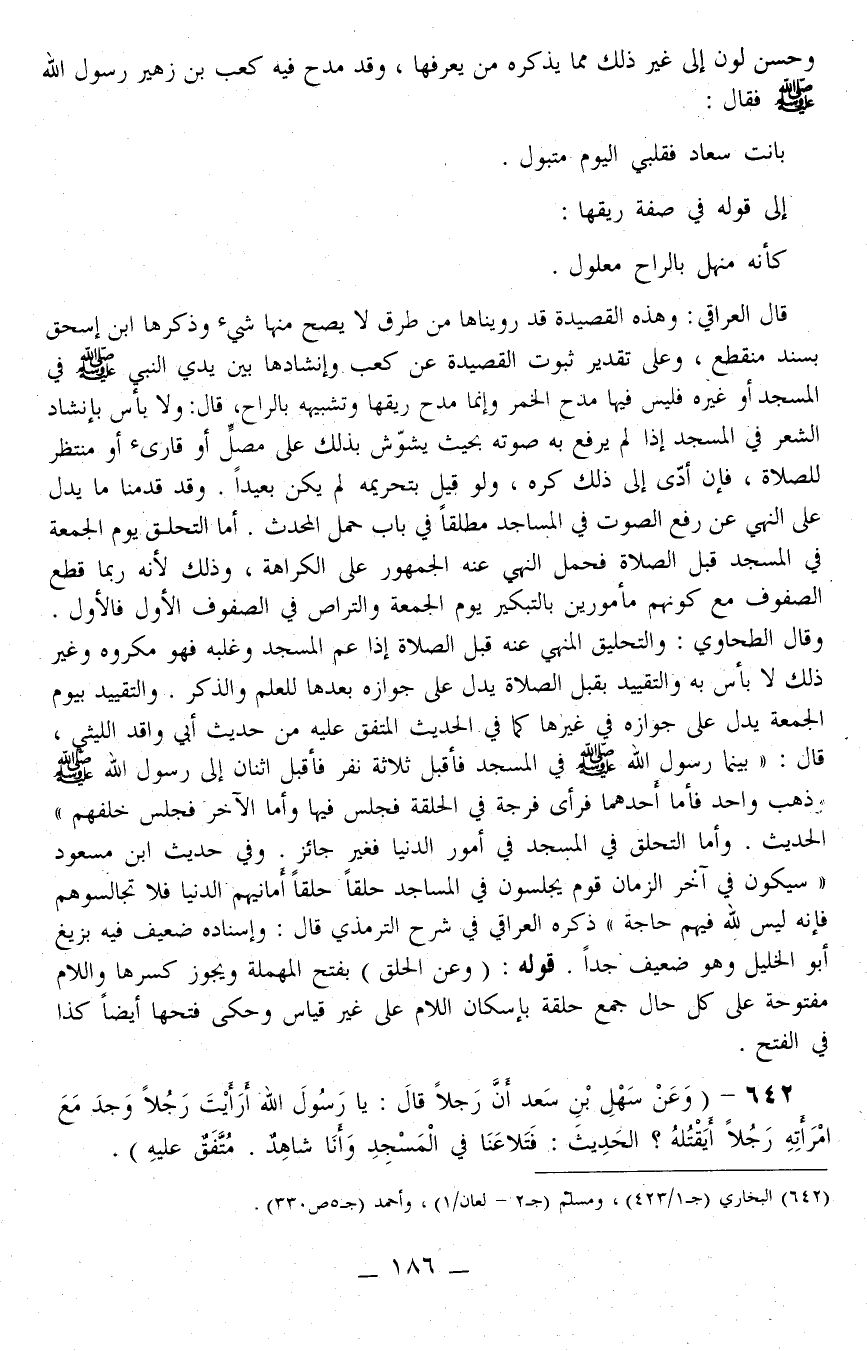 وحسن لون إلى غير ذلك مما يذكره من يعرفها ، وقد مدح فيه كعب بن زهير رسول الله
ﷺ فقال :
بانت سعاد فقلبي اليوم متبول .
إلى قوله في صفة ريقها :
كأنه منهل بالراح معلول .
قال العراقي : وهذه القصيدة قد رويناها من طرق لا يصح منها شيء وذكرها ابن إسحق
بسند منقطع ، وعلى تقدير ثبوت القصيدة عن كعب وإنشادها بين يدي النبي ﷺ في
المسجد أو غيره فليس فيها مدح الخمر وإنما مدح ريقها وتشبيهه بالراح، قال: ولا بأس بإنشاد
الشعر في المسجد إذا لم يرفع به صوته بحيث يشوّش بذلك على مصلٍّ أو قارىء أو منتظر
للصلاة ، فإن أدّى إلى ذلك كره ، ولو قيل بتحريمه لم يكن بعيداً . وقد قدمنا ما يدل
على النهي عن رفع الصوت في المساجد مطلقاً في باب حمل المحدث . أما التحلق يوم الجمعة
في المسجد قبل الصلاة فحمل النهي عنه الجمهور على الكراهة ، وذلك لأنه ربما قطع
الصفوف مع كونهم مأمورين بالتبكير يوم الجمعة والتراص في الصفوف الأول فالأول .
وقال الطحاوي : والتحليق المنهي عنه قبل الصلاة إذا عم المسجد وغلبه فهو مكروه وغير
ذلك لا بأس به والتقييد بقبل الصلاة يدل على جوازه بعدها للعلم والذكر . والتقييد بيوم
الجمعة يدل على جوازه في غيرها كما في الحديث المتفق عليه من حديث أبي واقد الليثي ،
قال : « بينما رسول الله ﷺ في المسجد فأقبل ثلاثة نفر فأقبل اثنان إلى رسول الله ﷺ
وذهب واحد فأما أَحدهما فرأى فرجة في الحلقة فجلس فيها وأما الآخر فجلس خلفهم »
الحديث . وأما التحلق في المسجد في أمور الدنيا فغير جائز . وفي حديث ابن مسعود
« سيكون في آخر الزمان قوم يجلسون في المساجد حلقاً حلقاً أَمانيهم الدنيا فلا تجالسوهم
فإنه ليس لله فيهم حاجة » ذكره العراقي في شرح الترمذي قال : وإسناده ضعيف فيه بزيغ
أبو الخليل وهو ضعيف جداً . قوله : ( وعن الحلق ) بفتح المهملة ويجوز كسرها واللام
مفتوحة على كل حال جمع حلقة بإسكان اللام على غير قياس وحكى فتحها أيضاً كذا
في الفتح .
٦٤٢ – ( وَعَنْ سَهْلِ بْنِ سَعد أَنَّ رَجلاً قالَ : يا رَسُولَ الله أَرَأَيْتَ رَجُلاً وَجدَ مَعَ
امْرَأَتِهِ رَجُلاً أَيَقْتُلهُ ؟ الحَدِيثَ : فَتَلاعَنَا في الْمَسْجِدِ وَأَنَا شاهِدٌ . مُتَّفَقٌ عليهِ ) .
(٦٤٢) البخاري (جـ١/٤٢٣) ، ومسلم (جـ٢ – لعان/١) ، وأحمد (جـ٥ص٣٣٠) .
– ١٨٦ –